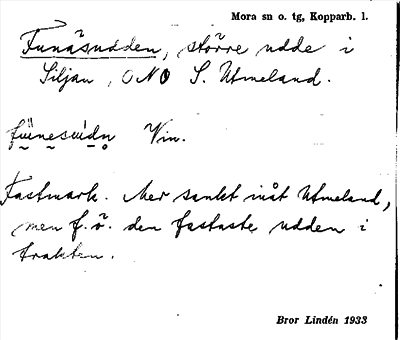 Mora sn o. tg, Kopparb. l.
Funäsudden, större udde i
Siljan, ONO S. Utmeland.
Vin.
Fastmark. Mer sankt inåt Utmeland,
men f. ö. den fastaste udden i
trakten.
Bror Lindén 1933